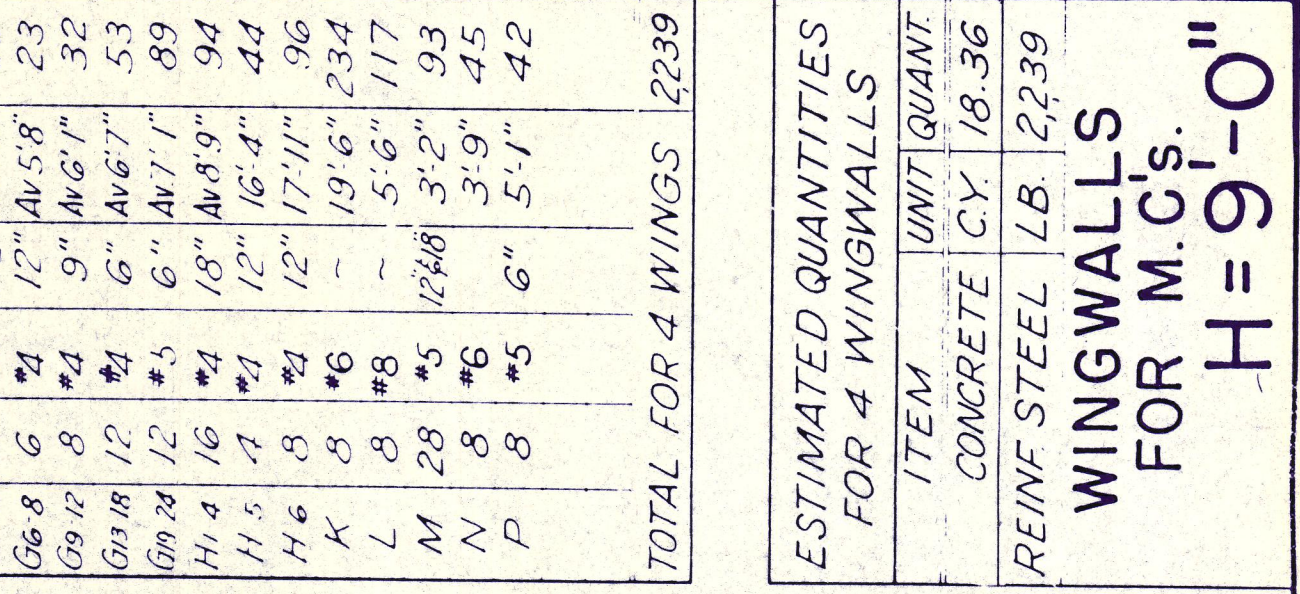 G6-8 6 #4 12" Av 5'8" 23
G9-12 8 #4 9" Av 6'1" 32
G13-18 12 #4 6" Av 6'7" 53
G19-24 12 #5 6" Av 7'1" 89
H1-4 16 #4 18" Av 8'9" 94
H-5 4 #4 12" 16'-4" 44
H-6 8 #4 12" 17'-11" 96
K 8 #6 ~ 19'-6" 234
L 8 #8 ~ 5'-6" 117
M 28 #5 12"&18" 3'-2" 93
N 8 #6 3'-9" 45
P 8 #5 6" 5'-1" 42
TOTAL FOR 4 WINGS 2,239
ESTIMATED QUANTITIES
FOR 4 WINGWALLS
ITEM UNIT QUANT.
CONCRETE C.Y. 18.36
REINF. STEEL LB. 2,239
WINGWALLS
FOR M.C's.
H = 9'-0"